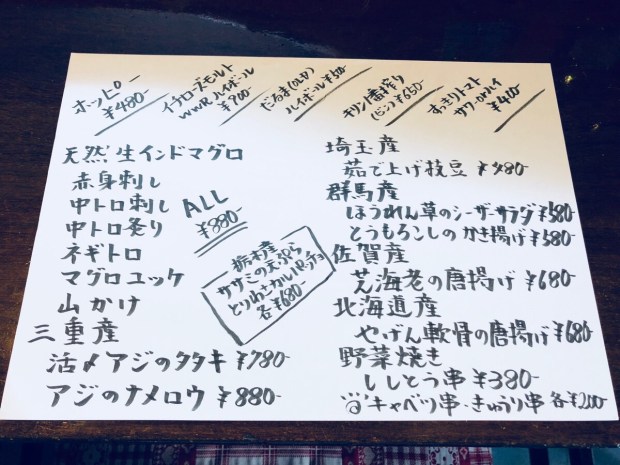 ホッピー
¥480-
イチローズモルト
WWR ハイボール
¥700-
だるま(OLD)
ハイボール ¥500
キリン一番搾り
(ビン) ¥650-
すっきりトマト
サワーorハイ
¥400
天然 生インドマグロ
赤身刺し
中トロ刺し
中トロ炙り
ネギトロ
マグロユッケ
山かけ
ALL
¥880-
三重産
活〆アジのタタキ ¥780-
アジのナメロウ ¥880-
栃木産
ササミの天ぷら
とりわさカルパッチョ
各¥680-
埼玉産
茹で上げ枝豆 ¥480-
群馬産
ほうれん草のシーザーサラダ ¥580-
とうもろこしのかき揚げ ¥580-
佐賀産
芝海老の唐揚げ ¥680-
北海道産
やげん軟骨の唐揚げ ¥680-
野菜焼き
ししとう串 ¥380-
キャベツ串・きゅうり串 各¥200-